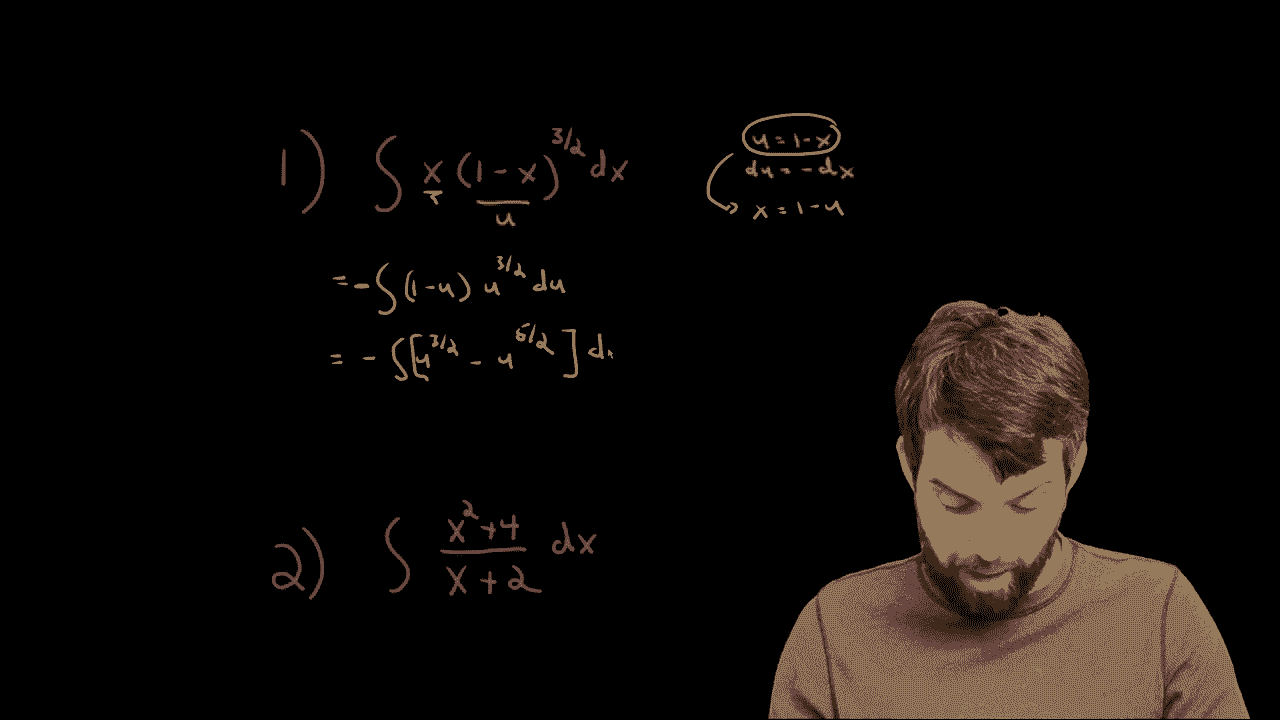 1) ∫ x (1 - x)^{3/2} dx
?
u
u = 1 - x
du = - dx
x = 1 - u
= - ∫ (1 - u) u^{3/2} du
= - ∫ [u^{3/2} - u^{5/2}] d
2) ∫ \frac{x^2 + 4}{x + 2} dx